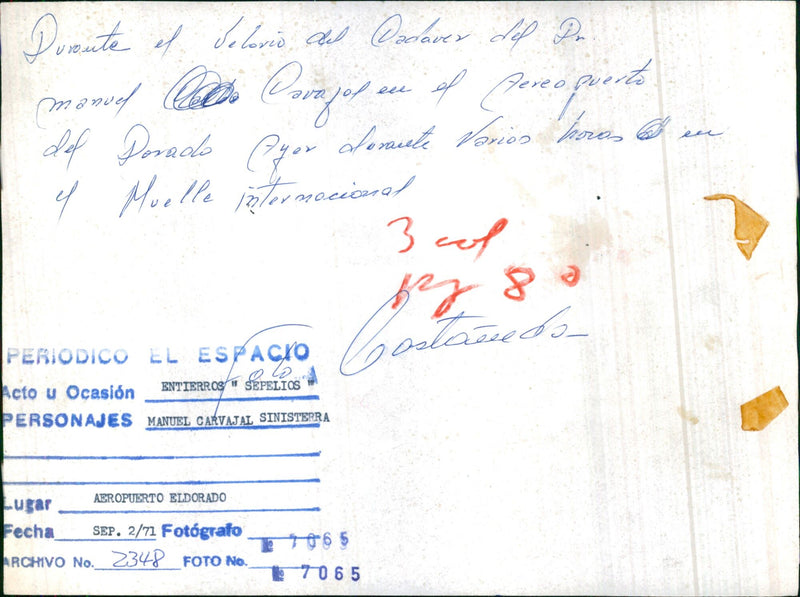 Durante el Velorio del Cadaver del Dr.
manuel Carvajal en el Aereopuerto
del Dorado Ayer durante Varias horas en
el Muelle internacional
3 col
pg 8ª
Castañeda
Foto
PERIODICO EL ESPACIO
Acto u Ocasión ENTIERROS " SEPELIOS "
PERSONAJES MANUEL CARVAJAL SINISTERRA
Lugar AEROPUERTO ELDORADO
Fecha SEP. 2/71 Fotógrafo
№ 7065
ARCHIVO No. 2348 FOTO No.
№ 7065